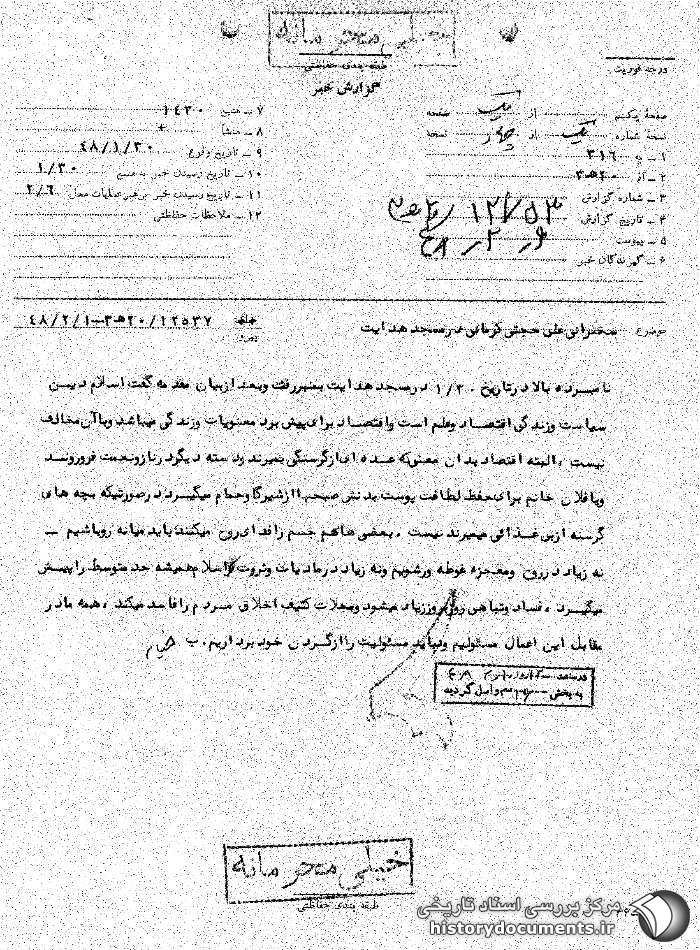 خیلی محرمانه
طبقه بندی حفاظتی
گزارش خبر
درجه فوریت
صفحه یکم از یک صفحه
نسخه شماره یک از چهار نسخه
۱ – به ۳۱۶
۲ – از ۲۰ه۳
۳ – شماره گزارش
۴ – تاریخ گزارش
۵ – پیوست
۶ – گیرندگان خبر
۷ – منبع ۱۴۳۰
۸ – منشأ
۹ – تاریخ وقوع ۴۸/۱/۳۰
۱۰ – تاریخ رسیدن خبر به منبع ۱/۳۰
۱۱ – تاریخ رسیدن خبر به رهبر عملیات محل ۲/۶
۱۲ – ملاحظات حفاظتی
موضوع سخنرانی علی حجتی کرمانی در مسجد هدایت
پیرو ۲۰/۱۲۵۳۷ه۳–۴۸/۲/۱
نامبرده بالا در تاریخ ۱/۳۰ در مسجد هدایت بمنبر رفت و بعد از بیان مقدمه گفت اسلام دین
سیاست و زندگی اقتصاد و علم است و اقتصاد برای پیش برد معنویات و زندگی میباشد و با آن مخالف
نیست ، البته اقتصاد بدان معنی که عده ای از گرسنگی بمیرند و دسته دیگر در ناز و نعمت فرو روند
و یا فلان خانم برای حفظ لطافت پوست بدنش صبحها از شیر گاو حمام میگیرد در صورتیکه بچه های
گرسنه از بی غذائی میمیرند نیست . بعضی ها هم جسم را فدای روح میکنند باید میانه رو باشیم –
نه زیاد در روح و معجزه غوطه ور شویم و نه زیاد در مادیات و ثروت و اسلام همیشه حد متوسط را پیش
میگیرد . فساد و تباهی روز بروز زیاد میشود و مجلات کثیف اخلاق مردم را فاسد میکند ، همه ما در
مقابل این اعمال مسئولیم و نباید مسئولیت را از گردن خود برداریم. ب
در ساعت
به بخش واصل گردید
خیلی محرمانه
طبقه بندی حفاظتی
مرکز بررسی اسناد تاریخی
historydocuments.ir